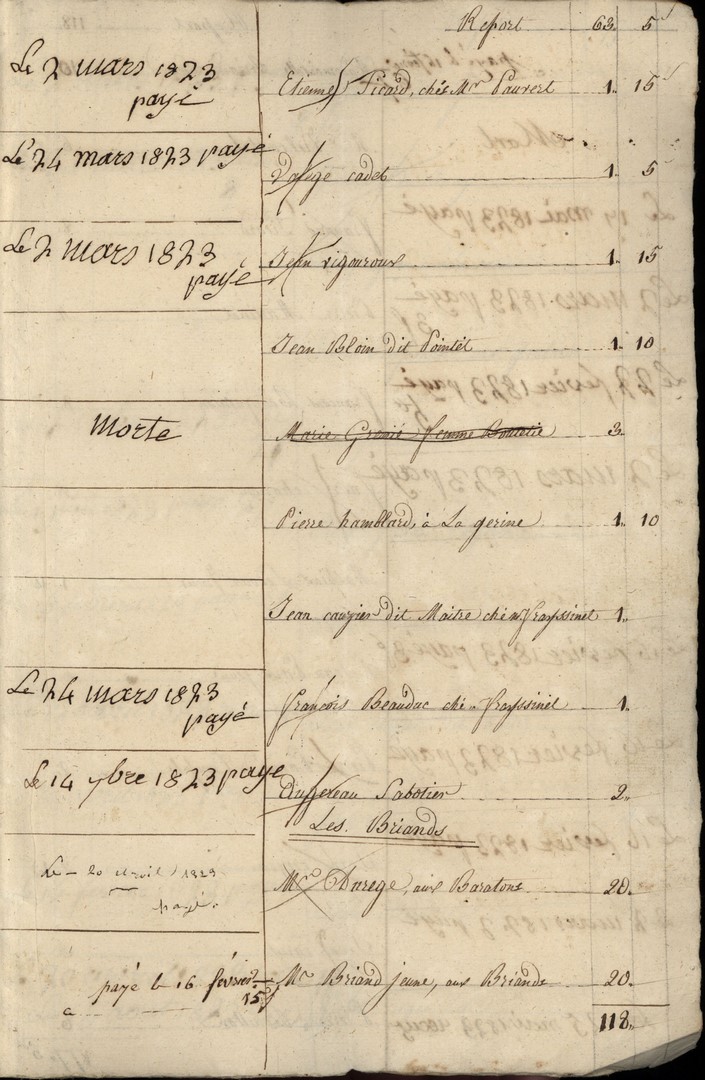 Report 63. 5
Le 2 mars 1823
payé
Etienne Picard, chés Mr Pauvert 1. 15
Le 24 mars 1823 payé
cadet 1. 5
Le 2 mars 1823
payé
Jean vigouroux 1. 15
Jean Bloin dit Pointët 1. 10
Morte
Marie Grenié femme 3.
Pierre hamblard, à La gerine 1. 10
Jean cauzier dit Maitre ché Mr frayssinet 1.
Le 24 mars 1823
payé
françois Beauduc ché Mr frayssinet 1.
Le 14 7bre 1823 payé
Sabotier 2.
Les Briands
Le 20 avril 1823
payé.
Mr Durege, aux Baratons 20.
payé le 16 février
15
a
Mr Briand jeune, aux Briands 20.
118.